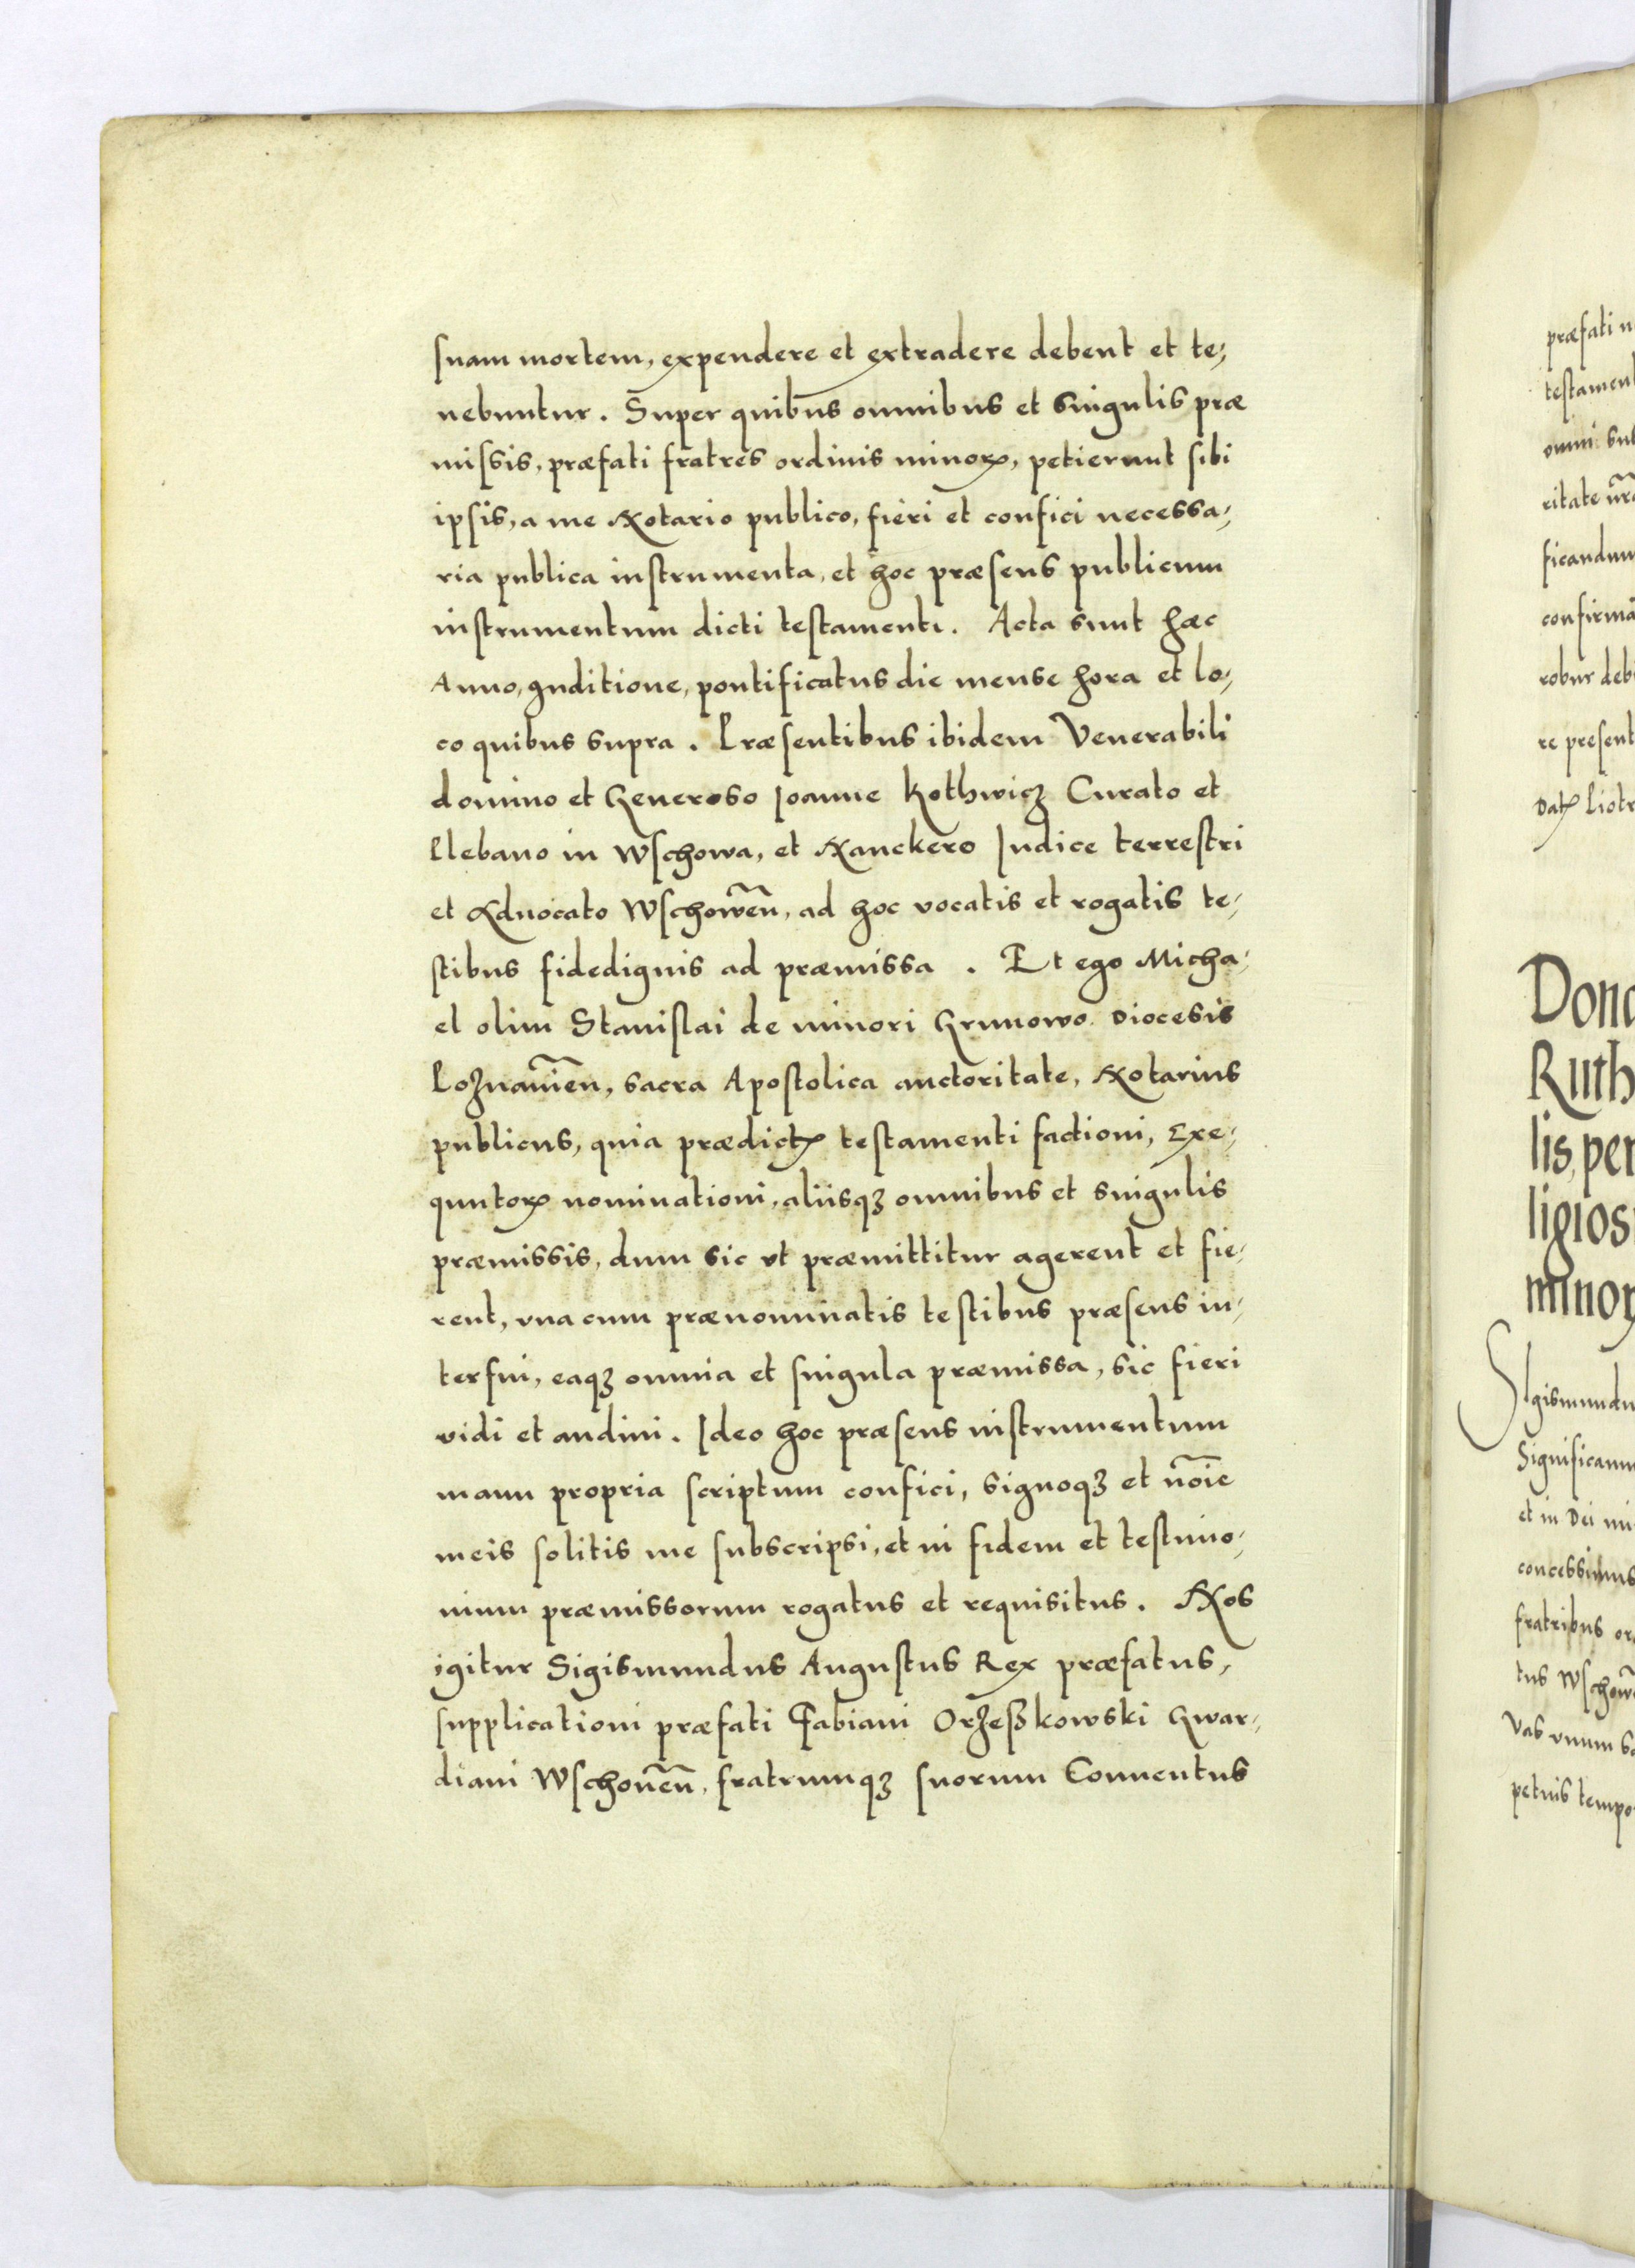 suam mortem, expendere et extradere debent et te-
nebuntur. Super quibus omnibus et singulis præ
missis, præfati fratres ordinis minorꝝ, petierunt sibi
ipsis, a me Notario publico, fieri et confici necessa-
ria publica instrumenta, et hoc præsens publicum
instrumentum dicti testamenti. Acta sunt hæc
Anno, Inditione, pontificatus die mense hora et lo-
co quibus supra. Præsentibus ibidem Venerabili
domino et Generoso Joanne Kothwicz Curato et
Plebano in Wschowa, et Nanckero Judice terrestri
et Aduocato Wschoweñ, ad hoc vocatis et rogatis te-
stibus fidedignis ad præmissa. Et ego Micha-
el olim Stanislai de minori Grunowo Diocesis
Poznanieñ, sacra Apostolica auctoritate, Notarius
publicus, quia prædictꝝ testamenti factioni, Exe-
quutorꝝ nominationi, aliisqꝫ omnibus et singulis
præmissis, dum sic vt præmittitur agerent et fie-
rent, vna cum prænominatis testibus præsens in-
terfui, eaqꝫ omnia et singula præmissa, sic fieri
vidi et audiui. Ideo hoc præsens instrumentum
manu propria scriptum confici, signoqꝫ et nõie
meis solitis me subscripsi, et in fidem et testimo-
nium præmissorum rogatus et requisitus. Nos
igitur Sigismundus Augustus Rex præfatus,
supplicationi præfati Fabiani Orzeßkowski Gwar-
diani Wschoueñ, fratrumqꝫ suorum Conuentus
præfati
testamen
omni sub
ritate
ficandum
confirma
robur deb
re present
Datꝝ Piotr
Dona
Ruth
lis, per
ligios
minor
Sigismundu
Significamu
et in Dei mi
concessimus
fratribus or
tus Wschow
Vas vnum sa
petuis tempo